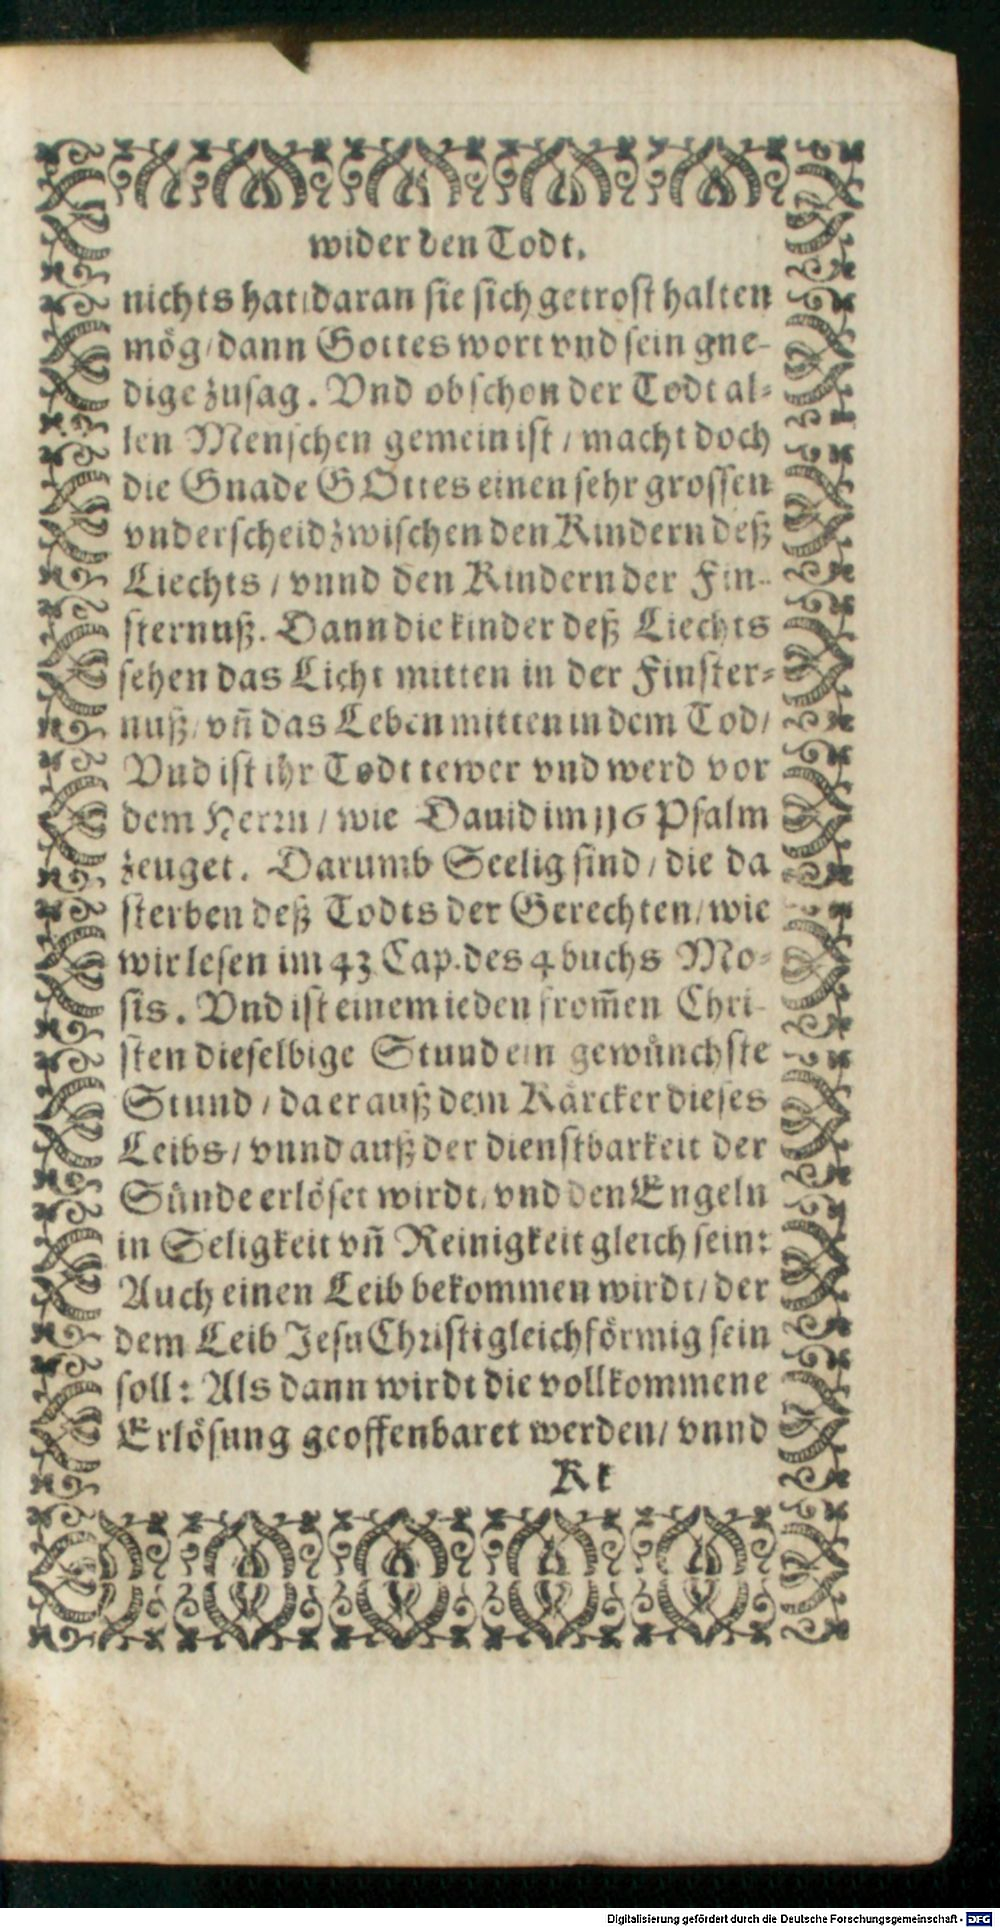 wider den Todt.
nichts hat / daran sie sich getrost halten
mög / dann Gottes wort vnd sein gne-
dige zusag. Vnd ob schon der Todt al-
len Menschen gemein ist / macht doch
die Gnade GOttes einen sehr grossen
vnderscheid zwischen den Kindern deß
Liechts / vnnd den Kindern der Fin-
sternuß. Dann die kinder deß Liechts
sehen das Licht mitten in der Finster-
nuß / vñ das Leben mitten in dem Tod /
Vnd ist ihr Todt tewer vnd werd vor
dem Herrn / wie Dauid im 116 Psalm
zeuget. Darumb Seelig sind / die da
sterben deß Todts der Gerechten / wie
wir lesen im 43 Cap. des 4 buchs Mo-
sis. Vnd ist einem ieden from̄en Chri-
sten dieselbige Stund ein gewünchste
Stund / da er auß dem Kärcker dieses
Leibs / vnnd auß der dienstbarkeit der
Sünde erlöset wirdt / vnd den Engeln
in Seligkeit vñ Reinigkeit gleich sein:
Auch einen Leib bekommen wirdt / der
dem Leib Jesu Christi gleichförmig sein
soll: Als dann wirdt die vollkommene
Erlösung geoffenbaret werden / vnnd
Kk
Digitalisierung gefördert durch die Deutsche Forschungsgemeinschaft - DFG